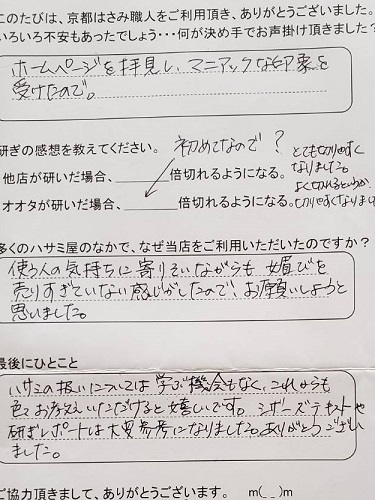 このたびは、京都はさみ職人をご利用頂き、ありがとうございました。
いろいろ不安もあったでしょう・・・何が決め手でお声掛け頂きました?
ホームページを拝見し、マニアックな印象を
受けたので。
研ぎの感想を教えてください。 初めてなので?
他店が研いだ場合、______倍切れるようになる。
オオタが研いだ場合、______倍切れるようになる。
とても切りやすく
なりました。
よく切れるというか、
切りやすくなりました
多くのハサミ屋のなかで、なぜ当店をご利用いただいたのですか?
使う人の気持ちに寄りそいながらも 媚びを
売りすぎていない感じがしたので、お願いしようと
思いました。
最後にひとこと
ハサミの扱いについては 学ぶ機会もなく、これからも
色々お教えいただけると嬉しいです。シザーズテキストや
研ぎレポートは大変参考になりました。ありがとうござい
ました。
ご協力頂きまして、ありがとうございます。 m(__)m